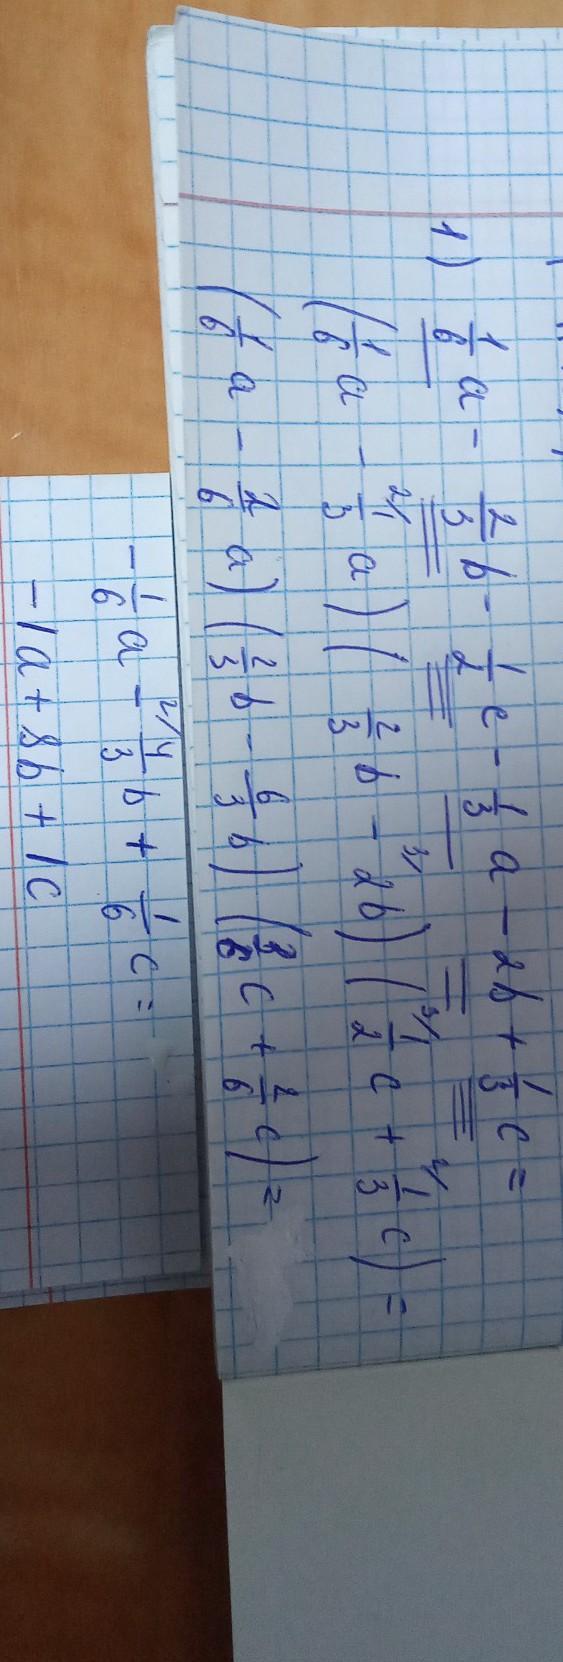 1) 1/6 a - 2/3 b - 1/2 c - 1/3 a - 2b + 1/3 c =
(1/6 a - 2/ 1/3 a) (2/3 b - 3/ 2b) (3/ 1/2 c + 2/ 1/3 c) =
(1/6 a - 2/6 a) (2/3 b - 6/3 b) (3/6 c + 2/6 c) =
- 1/6 a - 2/ 4/3 b + 1/6 c =
- 1a + 8b + 1c